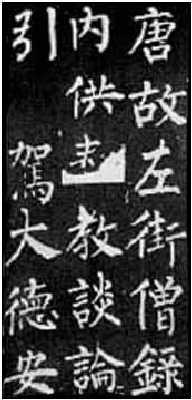 唐故左街僧錄
內供教談論
引駕大德安